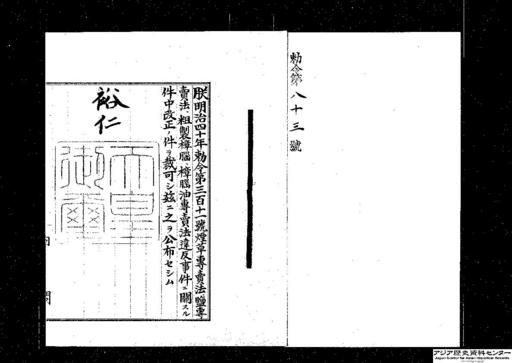 勅令第八十三號
朕明治四十年勅令第三百十一號煙草專賣法鹽專
賣法、粗製樟腦、樟腦油專賣法違反事件ニ關スル
件中改正ノ件ヲ裁可シ茲ニ之ヲ公布セシム
裕仁
天皇御璽
内 閣
アジア歴史資料センター
Japan Center for Asian Historical Records